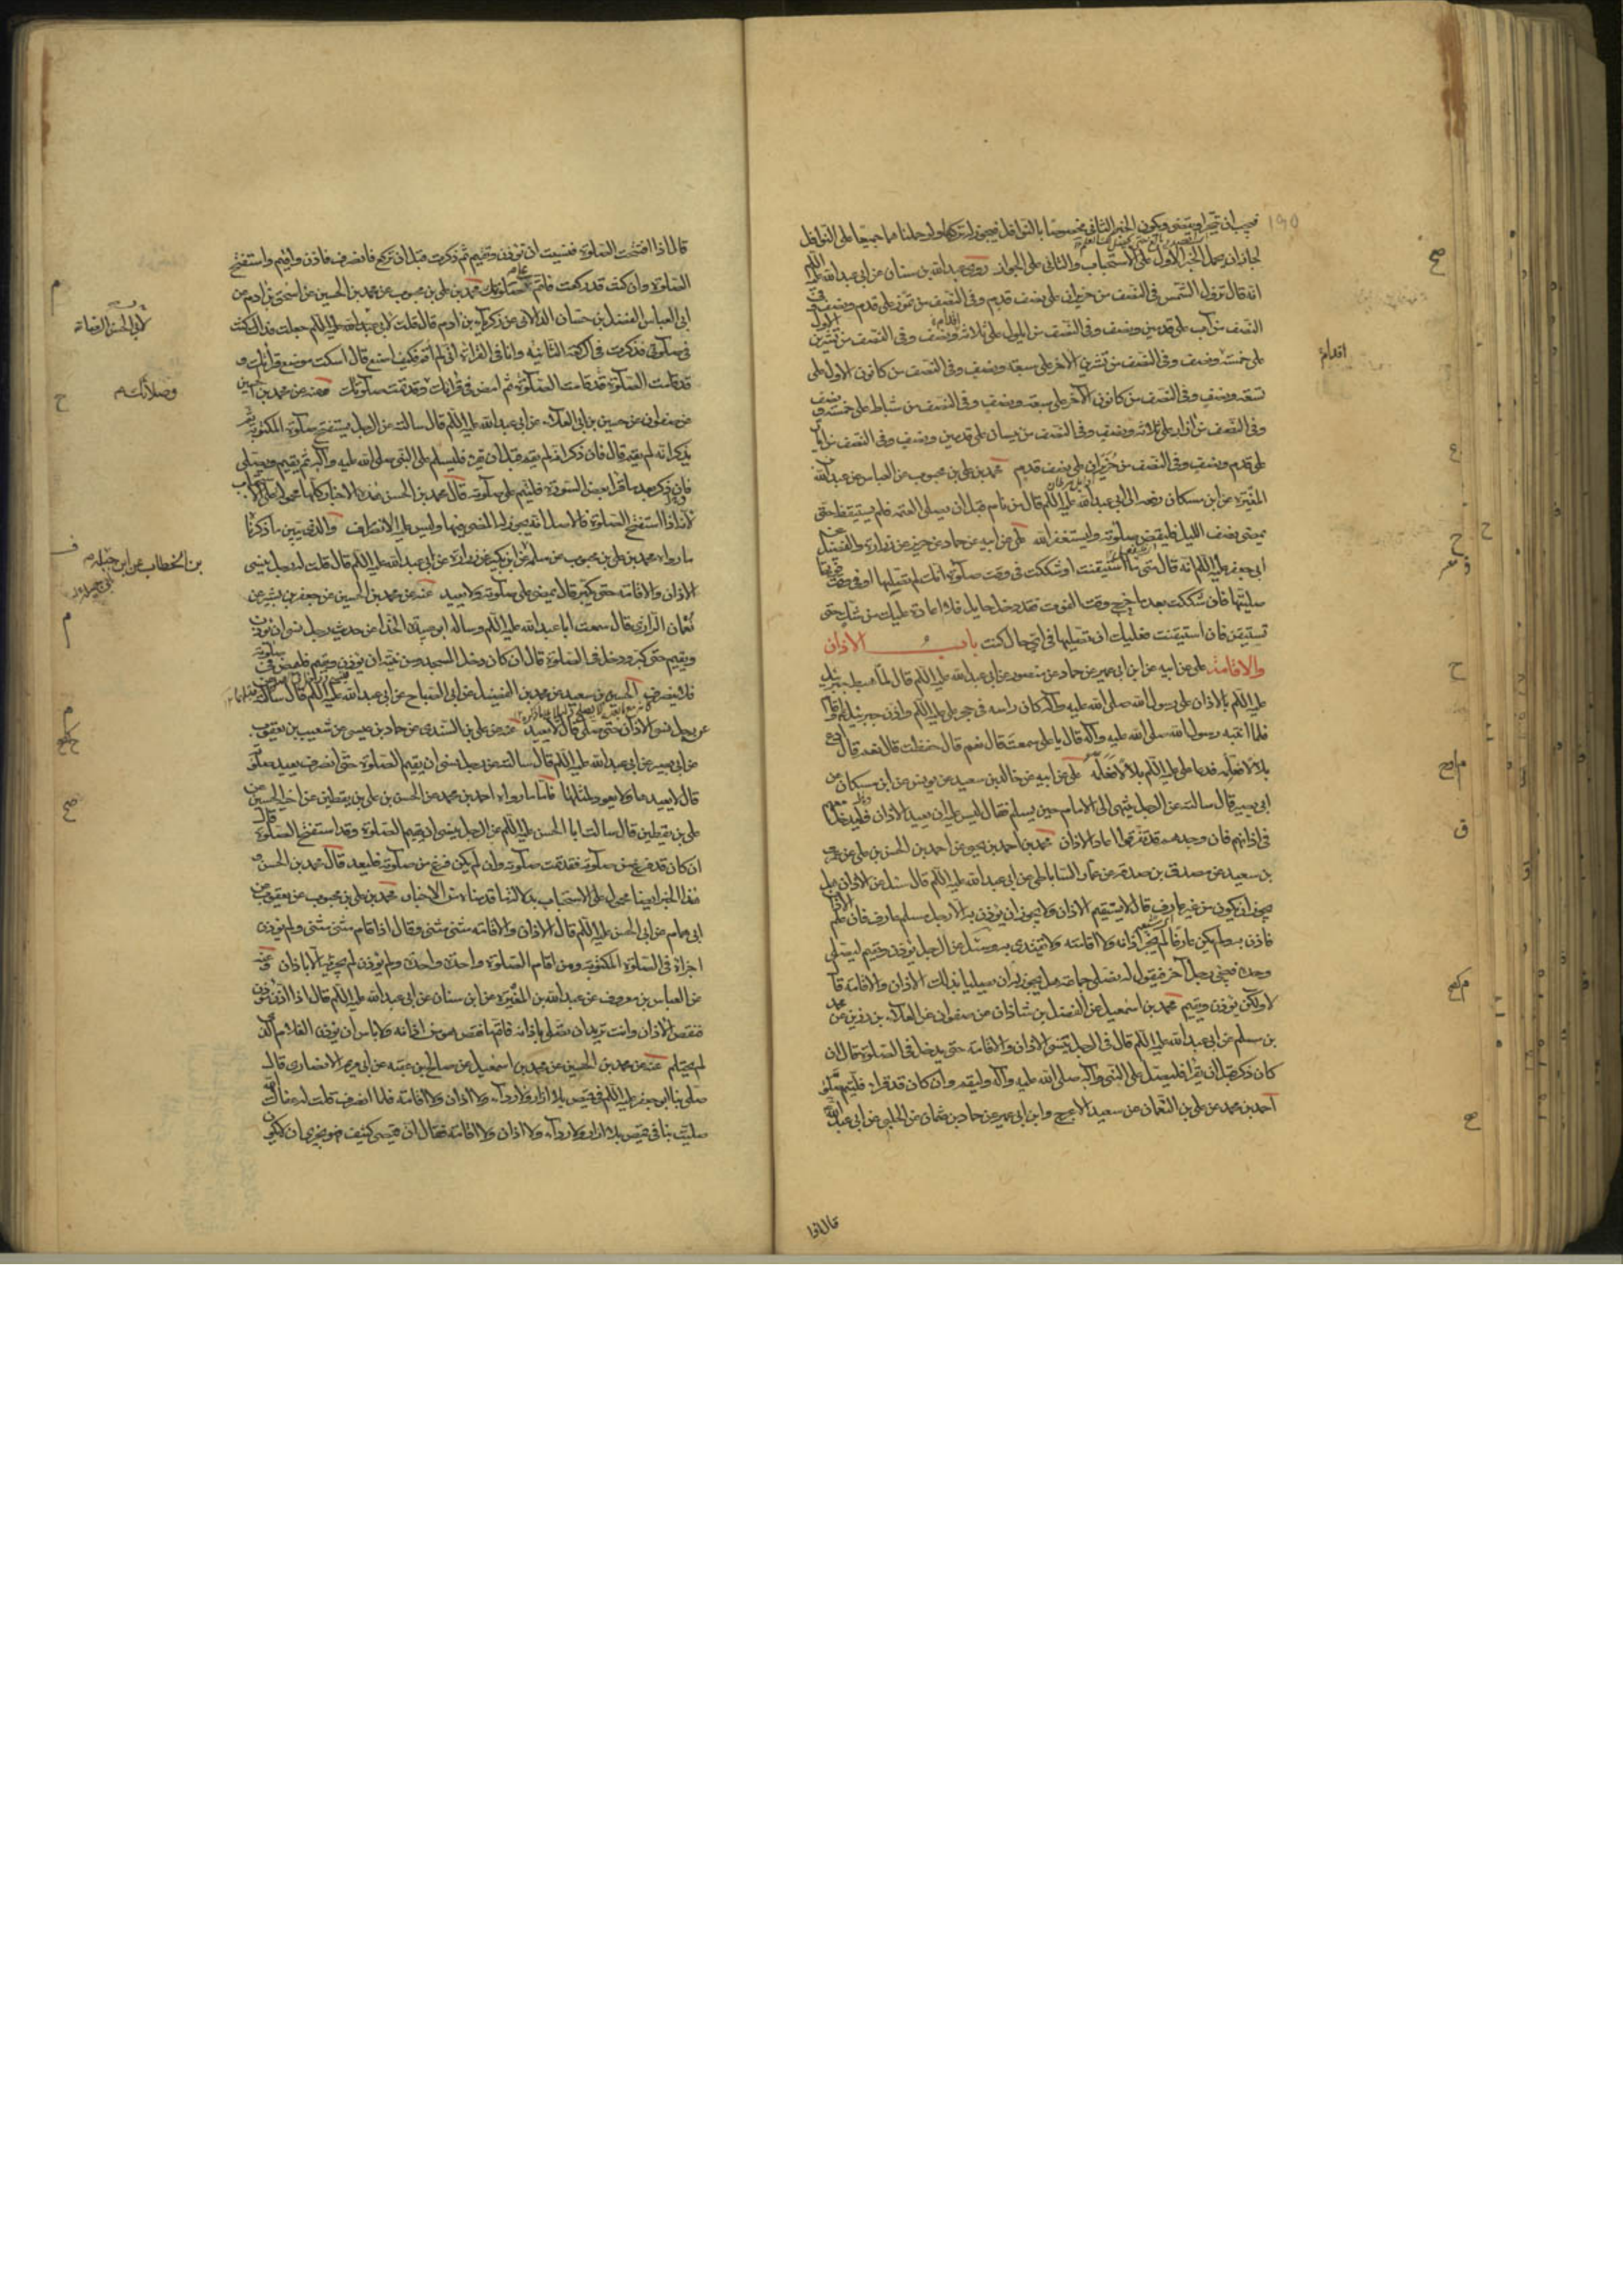 فيجب ان تقرأ وتبتغى ويكون الخبر الثانى مخصوصا بالنوافل فيجوز تركها ولو حملناهما جميعا على النوافل
لجاز ان يحمل الخبر الاول على الاستحباب والثانى على الجواز روى عبد الله بن سنان عن ابى عبد الله عليه السلم
انه قال تزول الشمس فى النصف من حزيران على نصف قدم وفى النصف من تموز على قدم ونصف وفى
النصف من آب على قدمين ونصف وفى النصف من ايلول على ثلاثة ونصف وفى النصف من تشرين الاول
على خمسة ونصف وفى النصف من تشرين الاخر على سبعة ونصف وفى النصف من كانون الاول على
تسعة ونصف وفى النصف من كانون الآخر على سبعة ونصف وفى النصف من شباط على خمسة ونصف
وفى النصف من آذار على ثلاثة ونصف وفى النصف من نيسان على قدمين ونصف وفى النصف من ايار
على قدم ونصف وفى النصف من حزيران على نصف قدم محمد بن على بن محبوب عن العباس عن عبد الله بن
المغيرة عن ابن مسكان رفعه الى ابى عبد الله عليه السلم قال من نام قبل ان يصلى العتمة فلم يستيقظ حتى
يمضى نصف الليل فليقض صلوته وليستغفر الله على عن ابيه عن حماد عن حريز عن زرارة والفضيل عن
ابى جعفر عليه السلم انه قال متى ما استيقنت او شككت فى وقت صلوة انك لم تصلها او فى وقت فوتها
صليتها فان شككت بعد ما خرج وقت الفوت فقد دخل حايل فلا اعادة عليك من شك حتى
تستيقن فان استيقنت فعليك ان تصليها فى اى حال كنت باب الاذان
والاقامة على عن ابيه عن ابن ابى عمير عن حماد عن منصور عن ابى عبد الله عليه السلم قال لما هبط جبرئيل
عليه السلم بالاذان على رسول الله صلى الله عليه وآله كان راسه فى حجر على عليه السلم فاذن جبرئيل واقام
فلما انتبه رسول الله صلى الله عليه وآله قال يا على سمعت قال نعم قال حفظت قال نعم قال ادع
بلالا فعلمه فدعا على عليه السلم بلالا فعلمه على عن ابيه عن خالد بن سعيد عن يونس عن ابن مسكان عن
ابى بصير قال سالته عن الرجل ينتهى الى الامام حين يسلم فقال ليس عليه ان يعيد الاذان فليدخل معهم
فى اذانهم فان وجدهم قد تفرقوا اعاد الاذان محمد بن احمد بن يحيى عن احمد بن الحسن بن على عن عمرو
بن سعيد عن مصدق بن صدقة عن عمار الساباطى عن ابى عبد الله عليه السلم قال سئل عن الاذان هل
يجوز ان يكون من غير عارف قال لا يستقيم الاذان ولا يجوز ان يؤذن به الا رجل مسلم عارف فان علم الاذان
فاذن به ولم يكن عارفا لم يجز اذانه ولا اقامته ولا يقتدى به وسئل عن الرجل يؤذن ويقيم ليصلى
وحده فيجئ رجل آخر فيقول له نصلى جماعة هل يجوز ان يصليا بذلك الاذان والاقامة قال
لا ولكن يؤذن ويقيم محمد بن اسمعيل عن الفضل بن شاذان عن صفوان عن العلاء بن رزين عن محمد
بن مسلم عن ابى عبد الله عليه السلم قال فى الرجل ينسى الاذان والاقامة حتى يدخل فى الصلوة قال ان
كان ذكر قبل ان يقرأ فليصل على النبى وآله صلى الله عليه وآله وليقم وان كان قد قرا فليتم صلوته
احمد بن محمد عن على بن النعمان عن سعيد الاعرج وابن ابى عمير عن حماد بن عثمان عن الحلبى عن ابى عبد الله
قال اذا
قال اذا افتتحت الصلوة فنسيت ان تؤذن وتقيم ثم ذكرت قبل ان تركع فانصرف فاذن واقم واستفتح
الصلوة وان كنت قد ركعت فاتم على صلوتك محمد بن على بن محبوب عن محمد بن الحسين عن اسحق بن ادم عن
ابى العباس الفضل بن حسان الدالانى عن زكريا بن ادم قال قلت لابى عبد الله عليه السلم جعلت فداك كنت
فى صلوتى فذكرت فى الركعة الثانية وانا فى القراءة انى لم اقم فكيف اصنع قال اسكت موضع قرائتك وقل
قد قامت الصلوة قد قامت الصلوة ثم امض فى قرائتك وقد تمت صلوتك وعنه عن محمد بن الحسين
عن صفوان عن حسين بن ابى العلاء عن ابى عبد الله عليه السلم قال سالته عن الرجل يستفتح صلوة المكتوبة ثم
يذكر انه لم يقم قال فان ذكر انه لم يقم قبل ان يقرء فليسلم على النبى صلى الله عليه وآله ثم يقيم ويصلى
فان ذكر بعد ما قرا بعض السورة فليتم على صلوته قال محمد بن الحسن هذه الاخبار كلها محمولة على الاستحباب
لانه اذا استفتح الصلوة فالاصل انه يجوز له المضى فيها وليس عليه الانصراف والذى يبين ما ذكرناه
ما رواه محمد بن على بن محبوب عن سلمة عن ابن بكير عن زرارة عن ابى عبد الله عليه السلم قال قلت له رجل ينسى
الاذان والاقامة حتى يكبر قال يمضى على صلوته ولا يعيد عنه عن محمد بن الحسين عن جعفر بن بشير عن
نعمان الرازى قال سمعت ابا عبد الله عليه السلم وساله ابو عبيدة الحذاء عن حديث رجل نسى ان يؤذن
ويقيم حتى كبر ودخل فى الصلوة قال ان كان دخل المسجد ومن نيته ان يؤذن ويقيم فليمض فى صلوته
فلا ينصرف الحسين بن سعيد عن محمد بن الفضيل عن ابى الصباح عن ابى عبد الله عليه السلم قال سالته
عن رجل نسى الاذان حتى صلى قال لا يعيد عنه عن على بن السندى عن حماد بن عيسى عن شعيب بن يعقوب
عن ابى بصير عن ابى عبد الله عليه السلم قال سالته عن رجل نسى ان يقيم الصلوة حتى انصرف يعيد صلوته
قال لا يعيدها ولا يعود لمثلها فاما ما رواه احمد بن محمد عن الحسن بن على بن يقطين عن اخيه الحسين عن
على بن يقطين قال سالت ابا الحسن عليه السلم عن الرجل ينسى ان يقيم الصلوة وقد استفتح الصلوة قال
ان كان قد فرغ من صلوته فقد تمت صلوته وان لم يكن فرغ من صلوته فليعد قال محمد بن الحسن
هذا الخبر ايضا محمول على الاستحباب بدلالة ما قدمناه من الاخبار محمد بن على بن محبوب عن يعقوب عن
ابى همام عن ابى الحسن عليه السلم قال الاذان والاقامة مثنى مثنى وقال اذا اقام مثنى مثنى ولم يؤذن
اجزاه فى الصلوة المكتوبة ومن اقام الصلوة واحدة واحدة ولم يؤذن لم يجزئه الا باذان وعنه
عن العباس بن معروف عن عبد الله بن المغيرة عن ابن سنان عن ابى عبد الله عليه السلم قال اذا اذن مؤذن
فنقص الاذان وانت تريد ان تصلى باذانه فاتم ما نقص هو من اذانه ولا باس ان يؤذن الغلام الذى
لم يحتلم عنه عن محمد بن الحسين عن محمد بن اسمعيل عن صالح بن عقبة عن ابى مريم الانصارى قال
صلى بنا ابو جعفر عليه السلم فى قميص بلا ازار ولا رداء ولا اذان ولا اقامة فلما انصرف قلت له عافاك الله
صليت بنا فى قميص بلا ازار ولا رداء ولا اذان ولا اقامة فقال ان قميصى كثيف فهو يجزى ان لا يكون